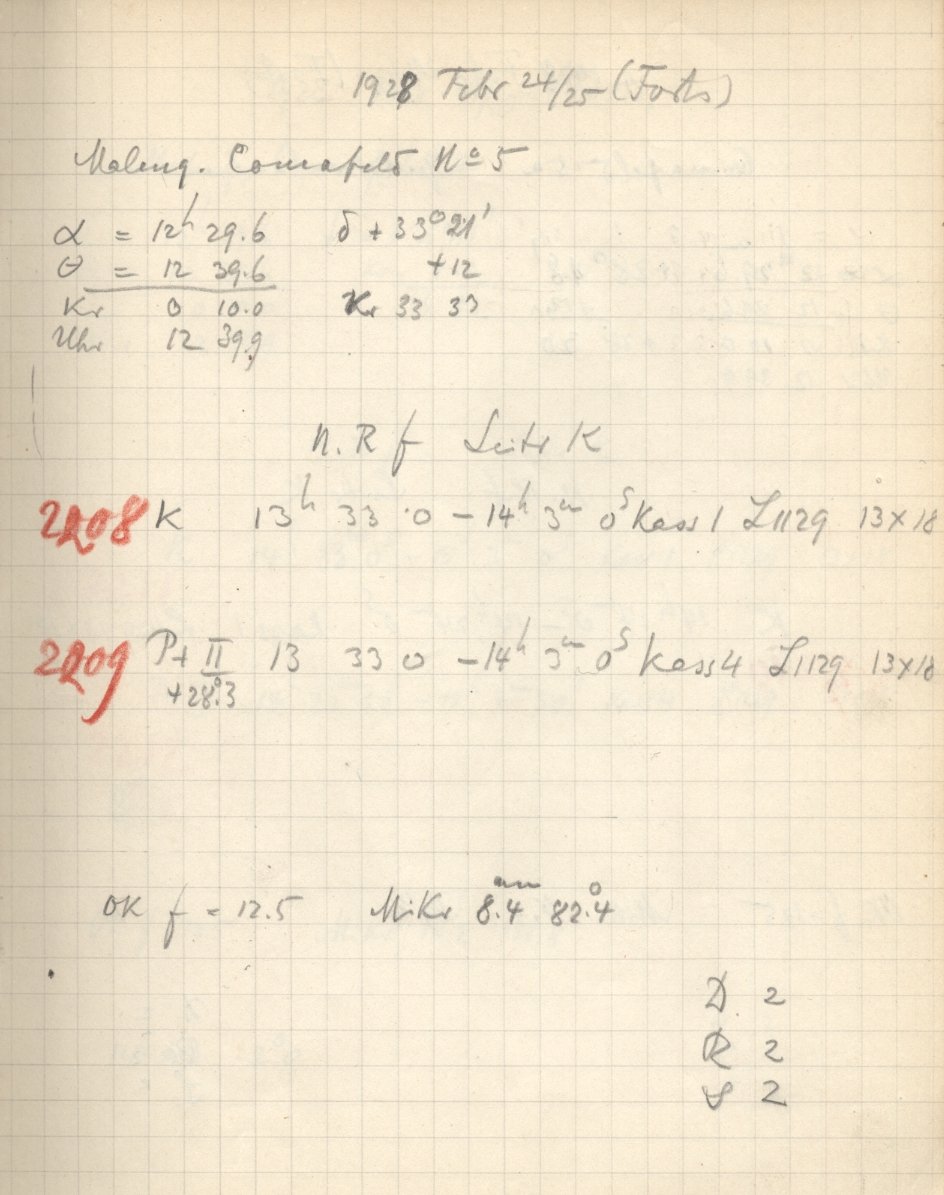 1928 Febr 24/25 (Forts)
Maleng. Comafeld No 5
α = 12h 29.6 δ + 33° 21'
θ = 12 39.6 +12
Kr 0 10.0 Kr 33 33
Uhr 12 39.9
N. R f Leitr K
2208 K 13h 33 0 – 14h 3m 0s Kass 1 L1129 13×18
2209 P+ II 13 33 0 – 14h 3m 0s Kass 4 L1129 13×18
+28°.3
OK f = 12.5 MiKr 8.4mm 82°.4
D 2
R 2
S 2